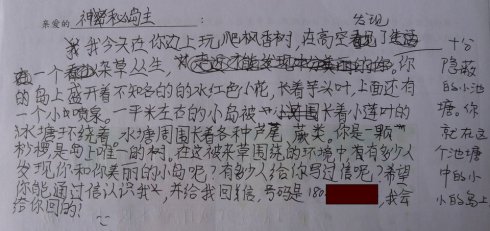 亲爱的 神秘岛主:
发现
我今天在你边上玩爬枫香树,在高空了
一个杂草丛生,你
的岛上盛开着不知名的的水红色小花,长着芋头叶,上面还有
一个小喷泉。一平米左右的小岛被长着小莲叶的
水塘环绕着。水塘周围长着各种芦尾,蕨类。你是一颗
桫椤,是岛上唯一的树。在这被杂草围绕的环境中,有多少人
发现你和你美丽的小岛呢?有多少人给你写过信呢?希望
你能通过信认识我,并给我回信,号码是180,我会
给你回的!
十分
隐蔽
的小池
塘。你
就在这
个池塘
中的小
小的岛上